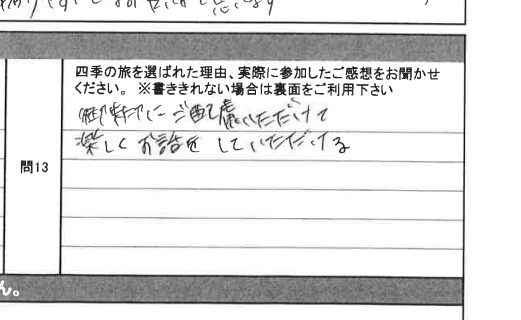 思います
四季の旅を選ばれた理由、実際に参加したご感想をお聞かせ
ください。 ※書ききれない場合は裏面をご利用下さい
にご配慮いただけて
楽しくお話をしていただける
問13
ん。